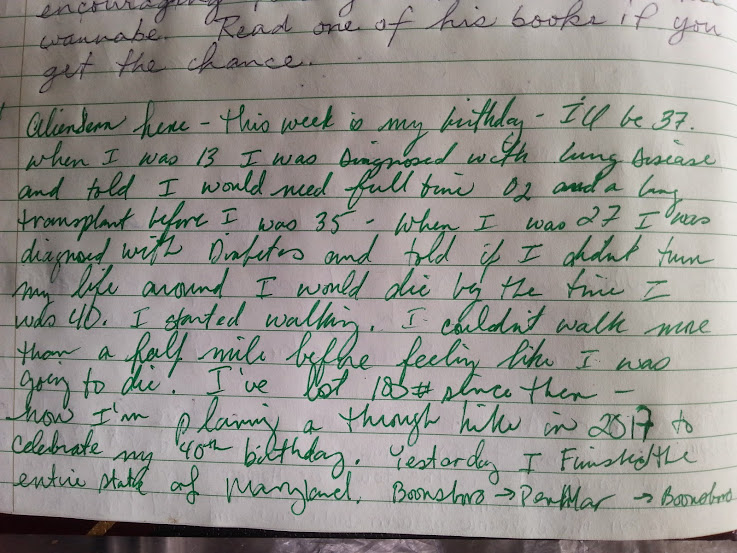 encouraging
wannabe. Read one of his books if you
get the chance.
here - this week is my birthday - I'll be 37.
when I was 13 I was Diagnosed with lung disease
and told I would need full time O2 and a lung
transplant before I was 35 - When I was 27 I was
diagnosed with Diabetes and told if I didnt turn
my life around I would die by the time I
was 40. I started walking. I couldn't walk more
than a half mile before feeling like I was
going to die. I've lost # since then -
now I'm planing a through hike in 2017 to
celebrate my 40th birthday. Yesterday I Finished the
entire state of Maryland. Boonsboro → PenMar → Boonsboro